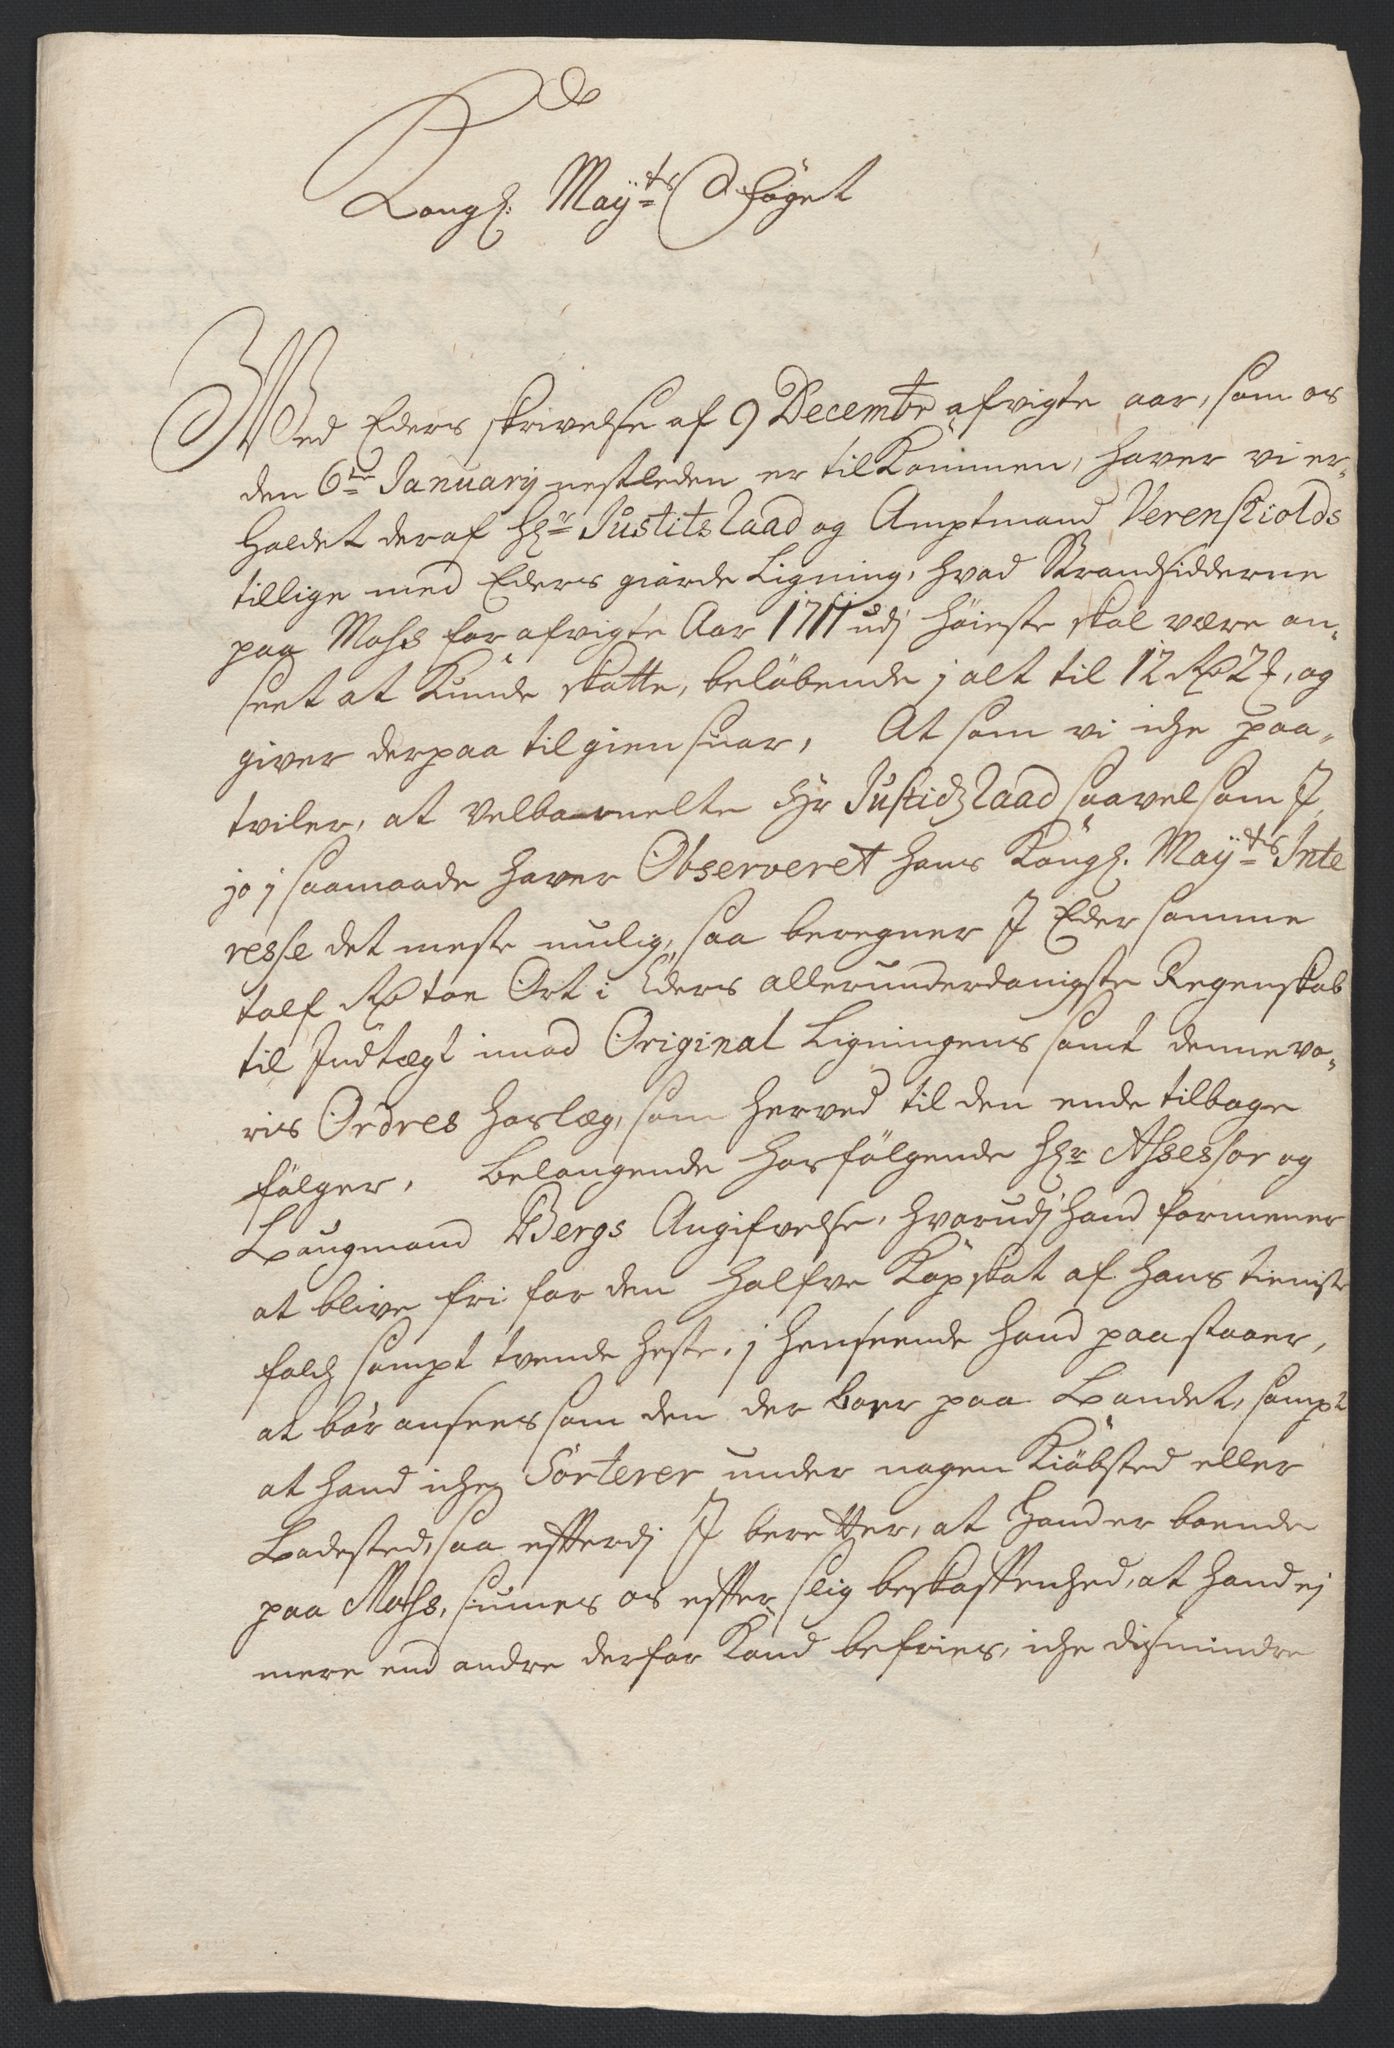 Kongl: May:ts Foget
Med Eders skrivelse af 9 Decembr afvigte aar, som os
den 6te January nestleden er tilkommen, haver vi er-
holdet deraf Hr: Justits Raad og Amptmand Verenskiolds
tillige med Eders giorde Ligning, hvad Strandsidderne
paa Mohs for afvigte Aar 1711 udj høieste skal være an-
seet at kunde skatte, beløbende j alt til 12 Rd 2 , og
giver derpaa til giensuar, At som vi iche paa-
tviler, at velbemelte Hr Justidz Raad saavelsom J
jo j saamaade haver Observeret hans Kongl. May:ts Inte
resse det meste mulig, saa beregner J Eder samme
tolf Rd toe Ort i Eders allerunderdanigste Regenskab
til Indtægt imod Original Ligningens samt denne vo-
ris Ordres Hoslæg, som herved til den ende tilbage
følger. Belangende hosfølgende Hr: Assessor og
Laugmand Bergs Angifvelse, hvorudj hand formener
at blive fri for den halfve Kopskat af hans tieniste
folch sampt tvende heste, j henseende hand paastaaer,
at bør ansees som den der boer paa Landet, sampt
at hand iche Sorterer under nogen Kiøbsted eller
Ladested, saa efterdj J beretter, at hand er boende
paa Mohs, siunes os efter slig beskaffenhed, at hand ej
mere end andre derfor kand befries, iche dismindre